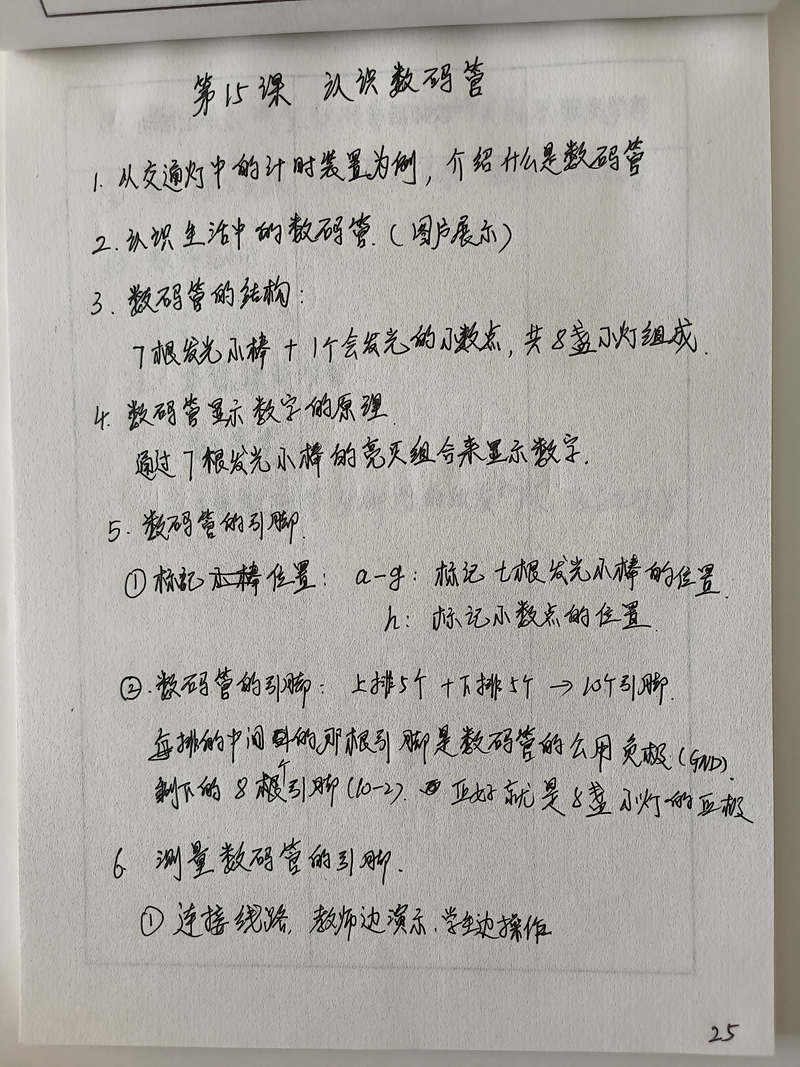 第15课 认识数码管
1. 从交通灯中的计时装置为例，介绍什么是数码管
2. 认识生活中的数码管.（图片展示）
3. 数码管的结构：
7根发光小棒 + 1个会发光的小数点，共8盏小灯组成.
4. 数码管显示数字的原理.
通过7根发光小棒的亮灭组合来显示数字.
5. 数码管的引脚.
① 标记小棒位置： a-g： 标记七根发光小棒的位置.
h： 标记小数点的位置.
②. 数码管的引脚： 上排5个 + 下排5个 → 10个引脚.
每排的中间的那根引脚是数码管的公用负极(GND).
剩下的8个引脚(10-2). 正好就是8盏小灯的正极
6. 测量数码管的引脚.
① 连接线路. 教师边演示.学生边操作
25